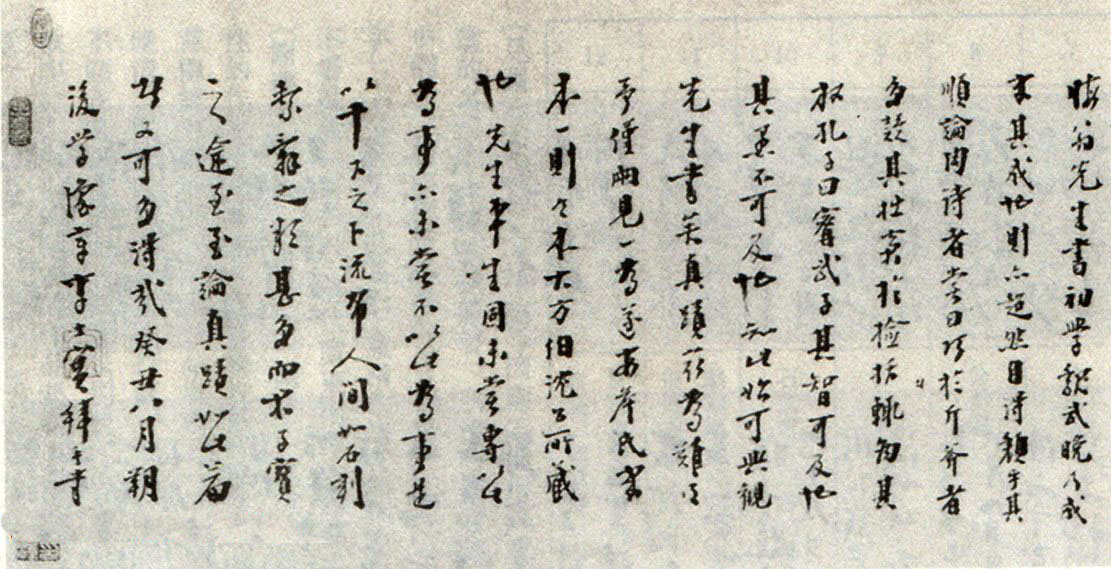 晦翁先生書初學魏武晚乃成
其成也則亦超然自得類乎其
順論閱詩者嘗曰巧於斤斧者
多疑其拙窘於檢括輒為其
放孔子曰甯武子其智可及也
其愚不可及也知此始可與觀
先生書矣真蹟茲為難得
予僅兩見一為婺安彦氏家
本一則今本大方伯沈公所藏
也先生平生固未嘗專以此
為事亦未嘗不以此為事是
以千百之下流布人間如石刻
繫辭之類甚多而求子寶
之途至至論真蹟如此者
豈又可多得哉癸丑八月朔
後學 李士實拜手書